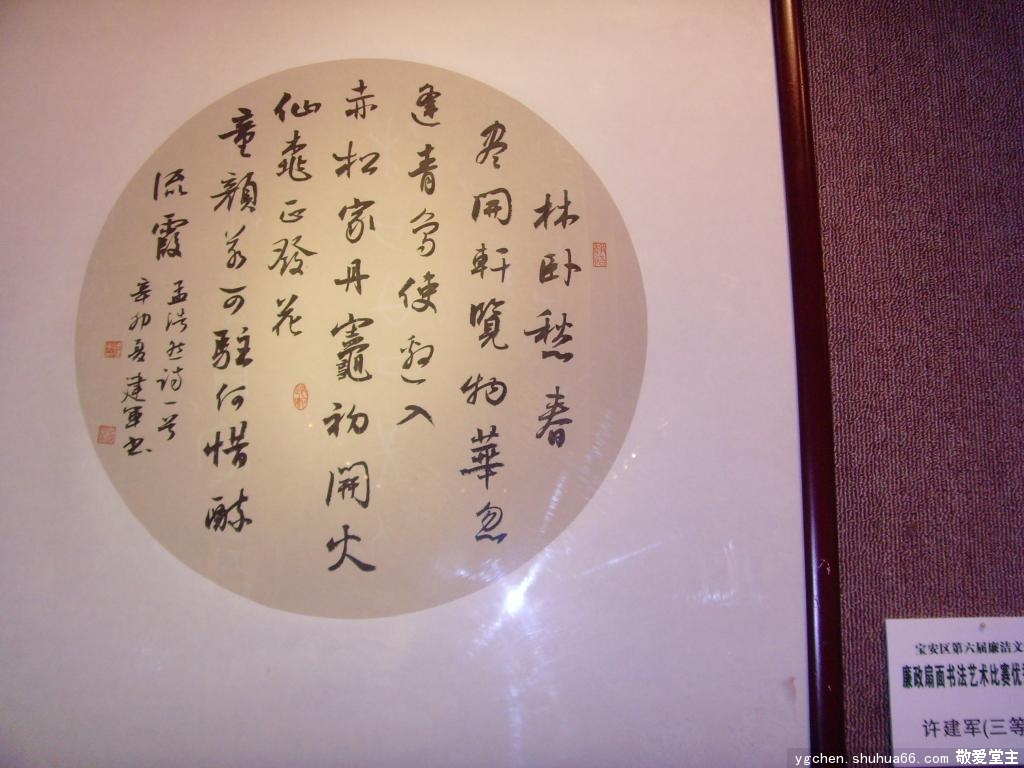 林卧愁春
尽開軒覽物華忽
逢青鸟使邀入
赤松家丹竈初開火
仙桃正發花
童顏若可駐何惜醉
流霞
孟浩然诗一首
辛卯夏建軍书
宝安区第六届廉洁文
廉政扇面书法艺术比赛优
许建军(三等
ygchen.shuhua66.com 敬爱堂主